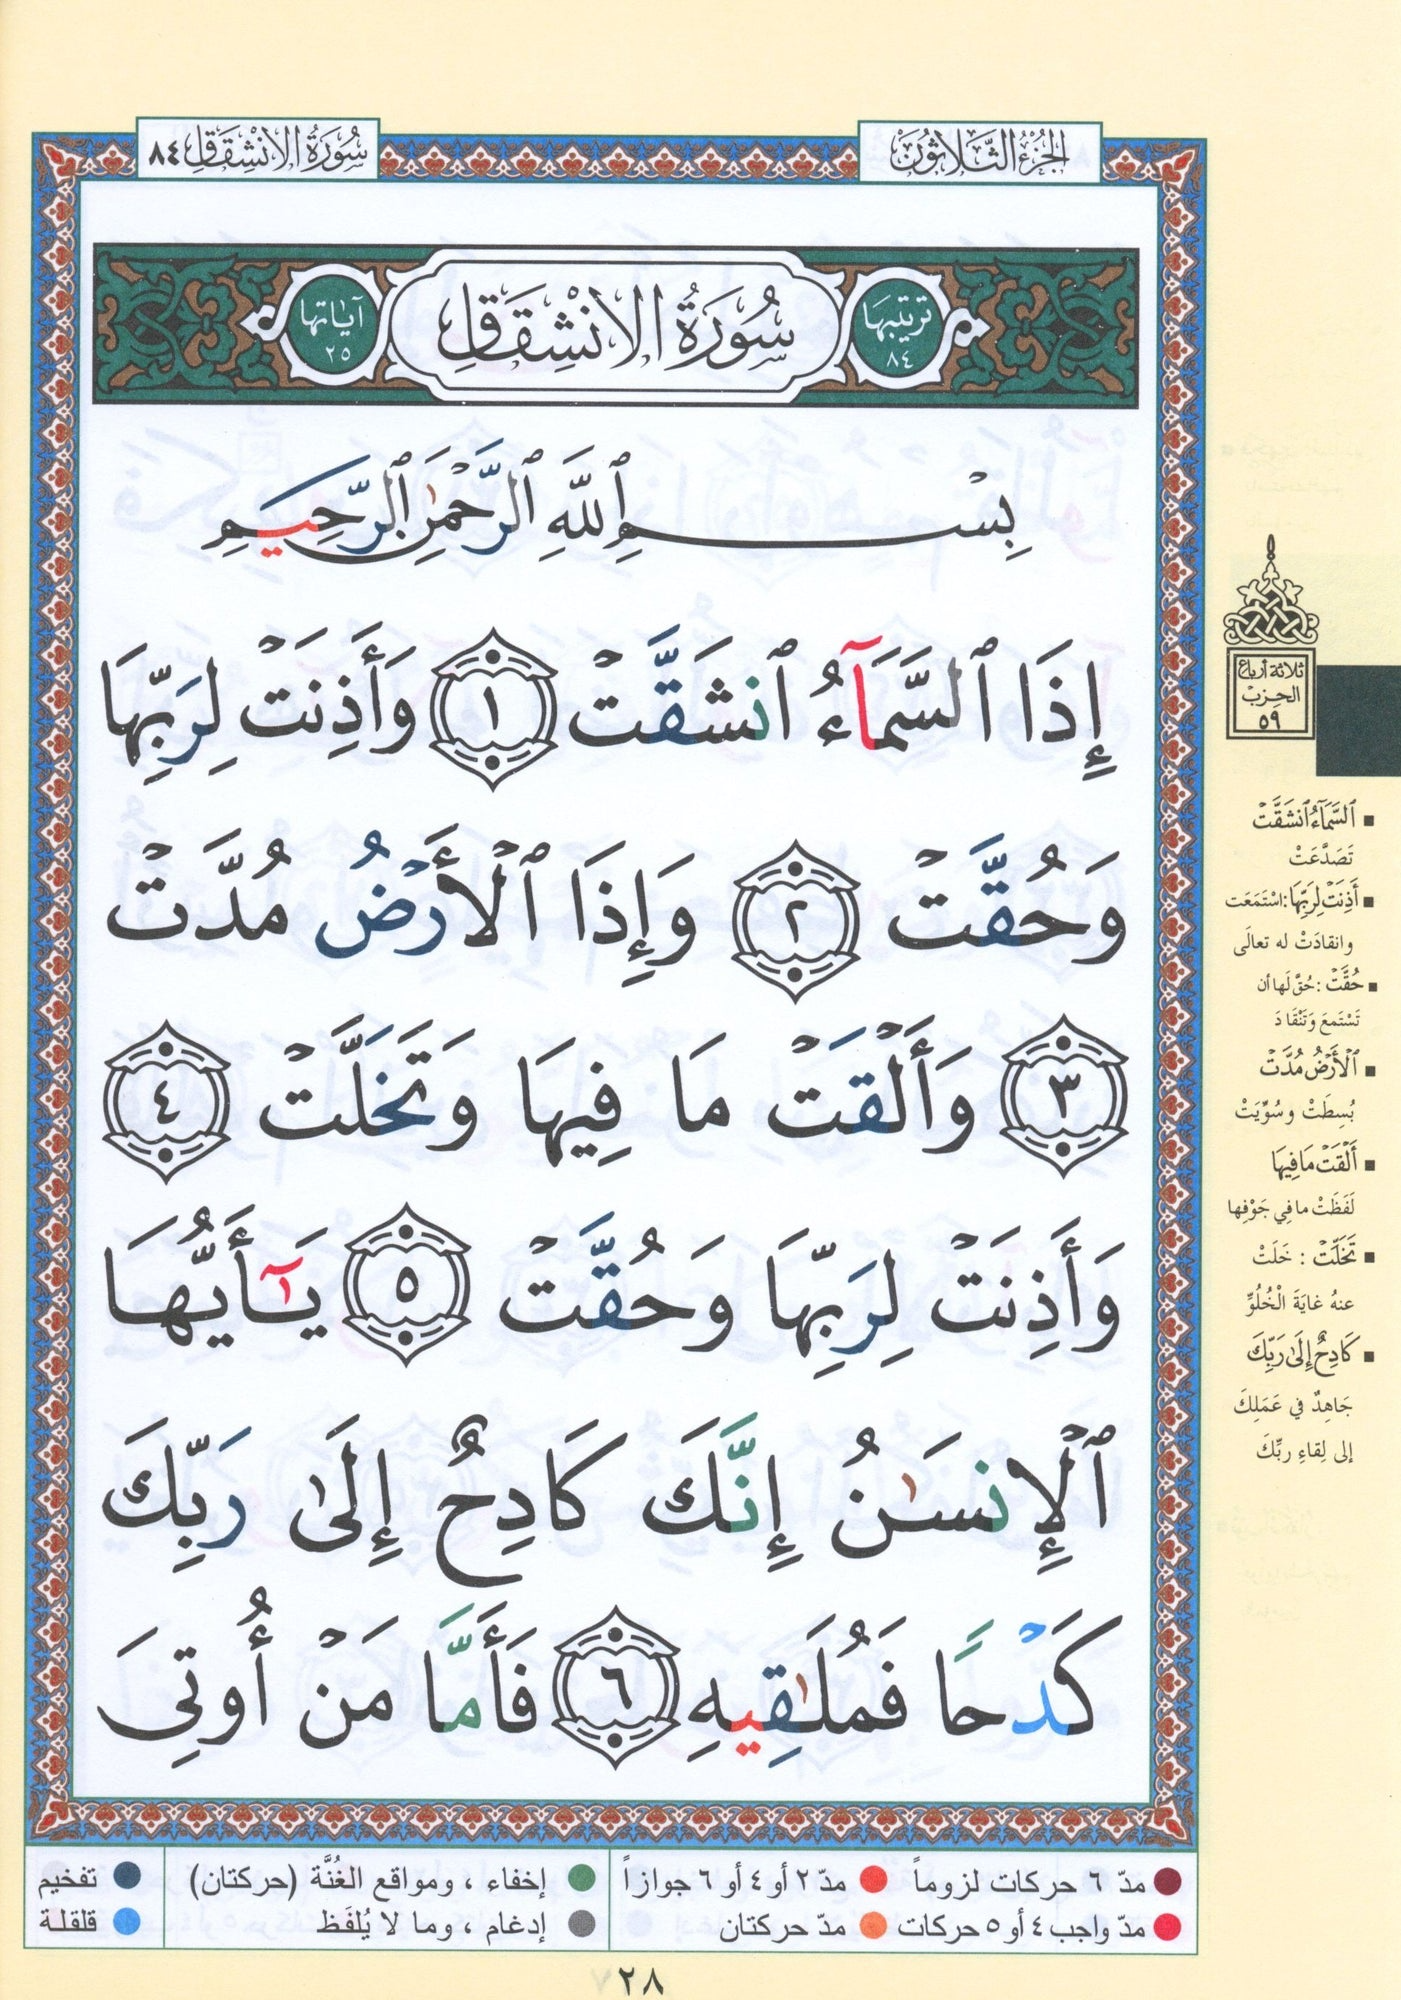 الجزء الثلاثون
سورة الانشقاق ٨٤
ترتيبها
٨٤
سُورَةُ الِانْشِقَاقِ
آياتها
٢٥
بِسْمِ ٱللَّهِ ٱلرَّحْمَٰنِ ٱلرَّحِيمِ
إِذَا ٱلسَّمَآءُ ٱنشَقَّتْ ١ وَأَذِنَتْ لِرَبِّهَا
وَحُقَّتْ ٢ وَإِذَا ٱلْأَرْضُ مُدَّتْ
٣ وَأَلْقَتْ مَا فِيهَا وَتَخَلَّتْ ٤
وَأَذِنَتْ لِرَبِّهَا وَحُقَّتْ ٥ يَـٰٓأَيُّهَا
ٱلْإِنسَـٰنُ إِنَّكَ كَادِحٌ إِلَىٰ رَبِّكَ
كَدْحًا فَمُلَـٰقِيهِ ٦ فَأَمَّا مَنْ أُوتِىَ
ثلاثة أرباع
الحزب
٥٩
▪ ٱلسَّمَآءُ ٱنشَقَّتْ
تَصَدَّعَتْ
▪ أَذِنَتْ لِرَبِّهَا: اسْتَمَعَت
وانقادَتْ له تعالَى
▪ حُقَّتْ: حُقَّ لَها أن
تَسْتَمعَ وَتَنْقَادَ
▪ ٱلْأَرْضُ مُدَّتْ
بُسِطَتْ وسُوِّيَتْ
▪ أَلْقَتْ مَا فِيهَا
لَفَظَتْ ما في جَوْفِها
▪ تَخَلَّتْ: خَلَتْ
عنهُ غايَةَ الْخُلُوِّ
▪ كَادِحٌ إِلَىٰ رَبِّكَ
جَاهِدٌ في عَمَلِكَ
إلى لِقاءِ ربِّكَ
مدّ ٦ حركات لزوماً مدّ ٢ أو ٤ أو ٦ جوازاً
مدّ واجب ٤ أو ٥ حركات مدّ حركتان
إخفاء، ومواقع الغُنَّة (حركتان)
إدغام، وما لا يُلفَظ
تفخيم
قلقلة
٢٨